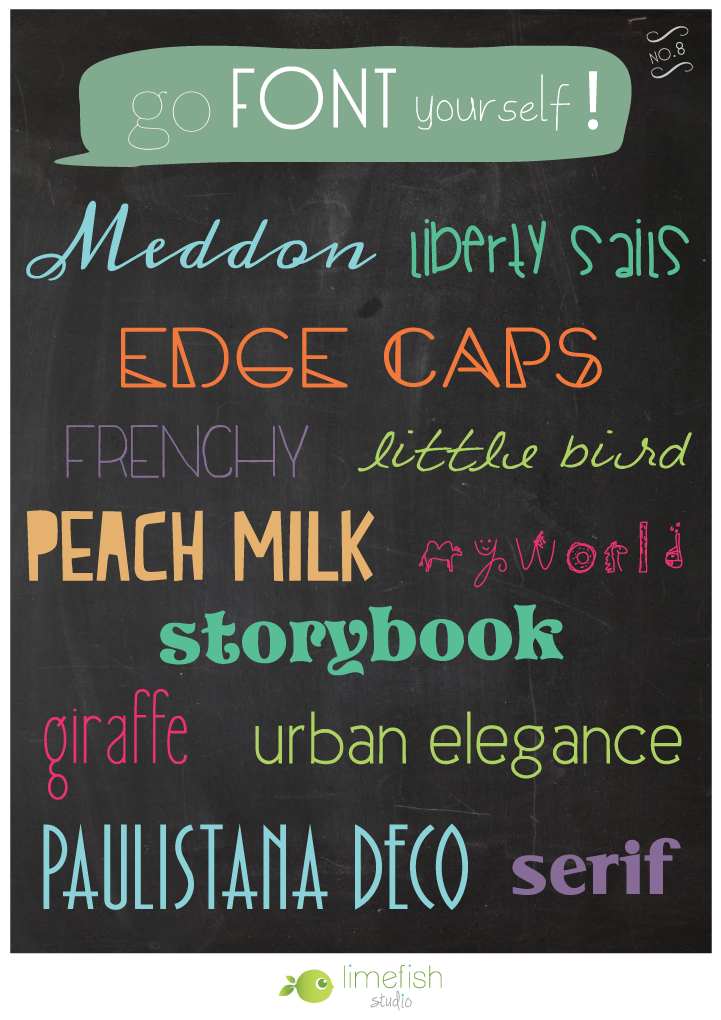 NO.8
go FONT yourself!
Meddon liberty sails
EDGE CAPS
FRENCHY little bird
PEACH MILK my world
storybook
giraffe urban elegance
PAULISTANA DECO serif
limefish
studio